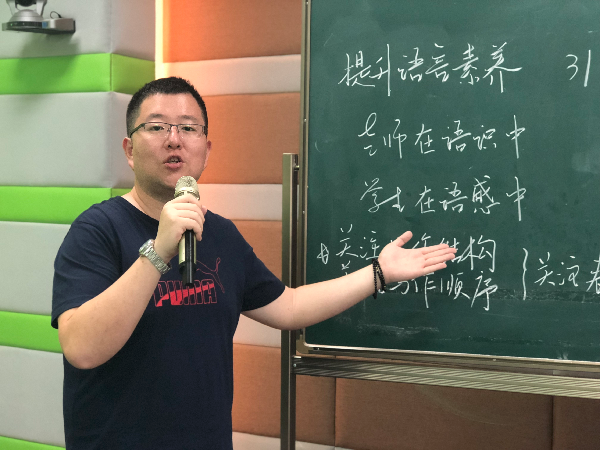 提升语言素养 31
老师在语识中
学生在语感中
关注 结构 关注
作顺序
PUMA